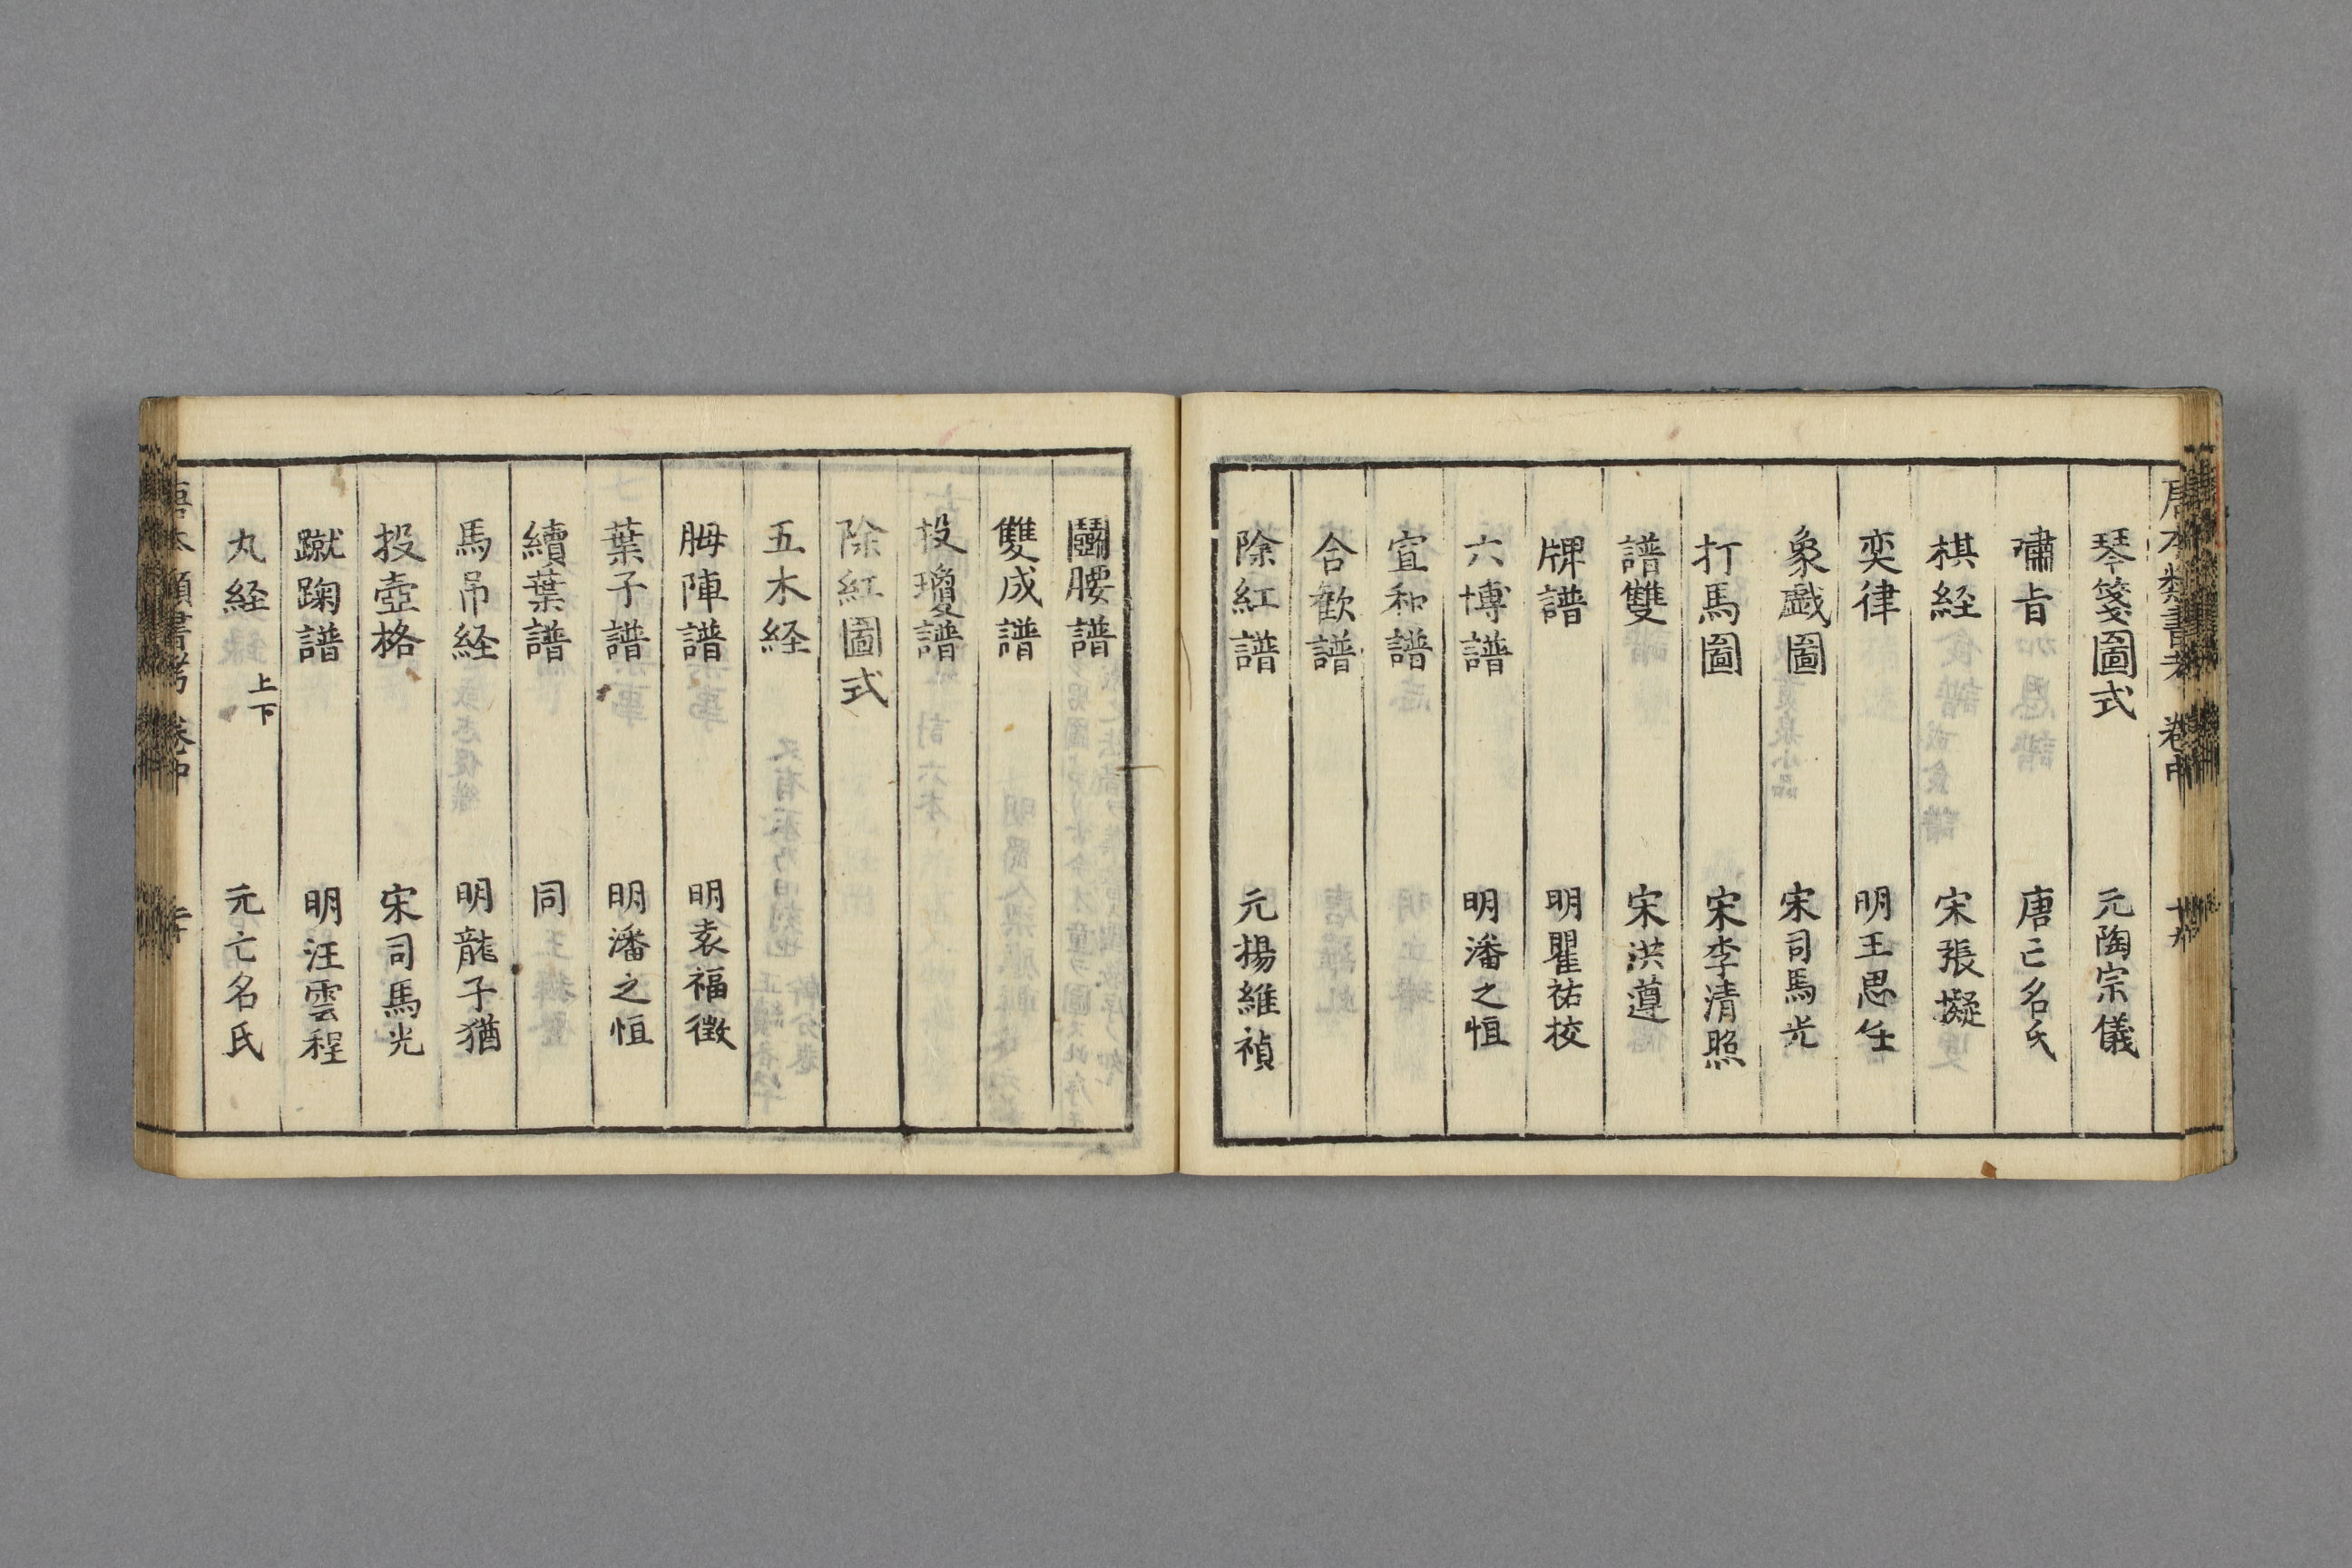 唐本類書考 卷中 十九
琴箋圖式 元陶宗儀
嘯旨 唐亡名氏
棋経 宋張擬
奕律 明王思任
象戲圖 宋司馬光
打馬圖 宋李清照
譜雙 宋洪遵
牌譜 明瞿祐校
六博譜 明潘之恒
宣和譜
合歓譜
除紅譜 元揚維禎
鬪腰譜
雙成譜
投瓊譜
除紅圖式
五木経
胟陣譜 明袁福徴
葉子譜 明潘之恒
續葉譜 同
馬吊経 明龍子猶
投壺格 宋司馬光
蹴踘譜 明汪雲程
丸経 上下 元亡名氏
唐本類書考 卷中 二十